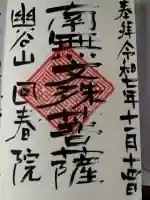 奉拝 令和七年十二月十四日
南無文殊菩薩
幽谷山 回春院